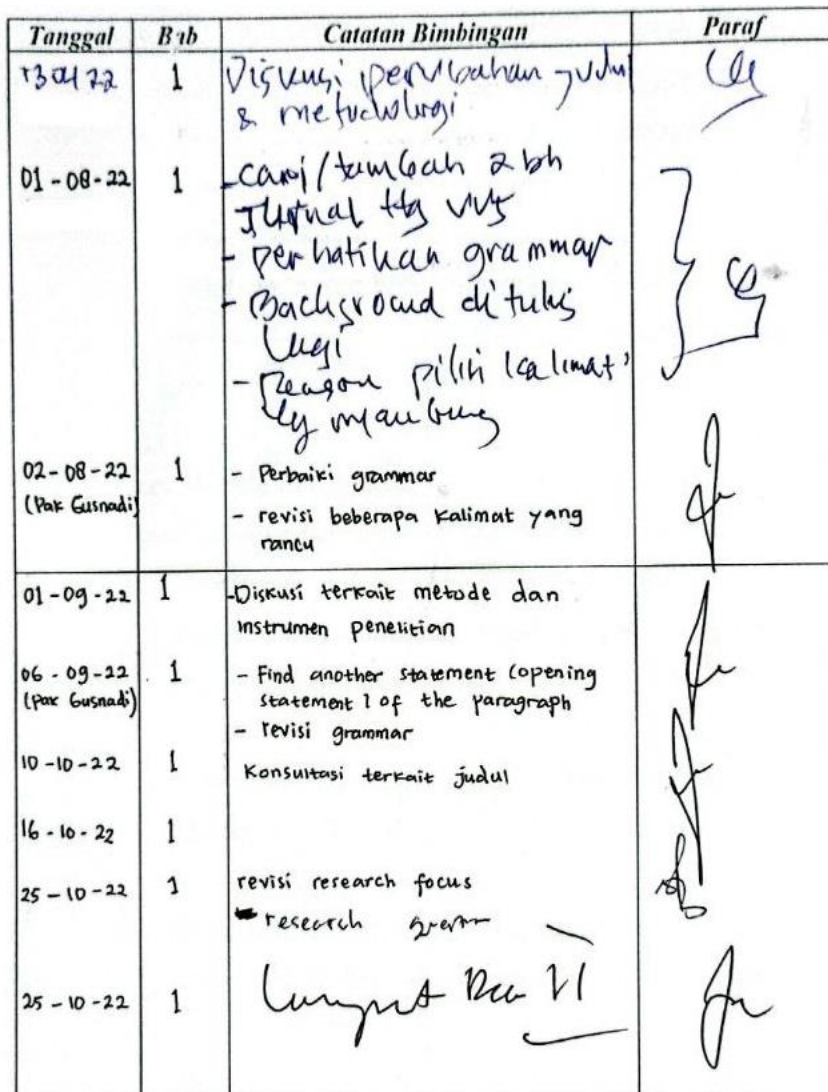 Tanggal Bab Catatan Bimbingan Paraf
1 Diskusi perubahan judul
& metodologi
01-08-22 1 - cari/tambah 2 bh
Jurnal ttg
- perhatikan grammar
- Background ditulis
lagi
- Reason pilih kalimat
yg
02-08-22 1 - Perbaiki grammar
(Pak Gusnadi)
- revisi beberapa kalimat yang
rancu
01-09-22 1 - Diskusi terkait metode dan
instrumen penelitian
06-09-22 1 - Find another statement (opening
(Pak Gusnadi) statement) of the paragraph
- revisi grammar
10-10-22 1 Konsultasi terkait judul
16-10-22 1
25-10-22 1 revisi research focus
research
25-10-22 1 Lanjut Bab II